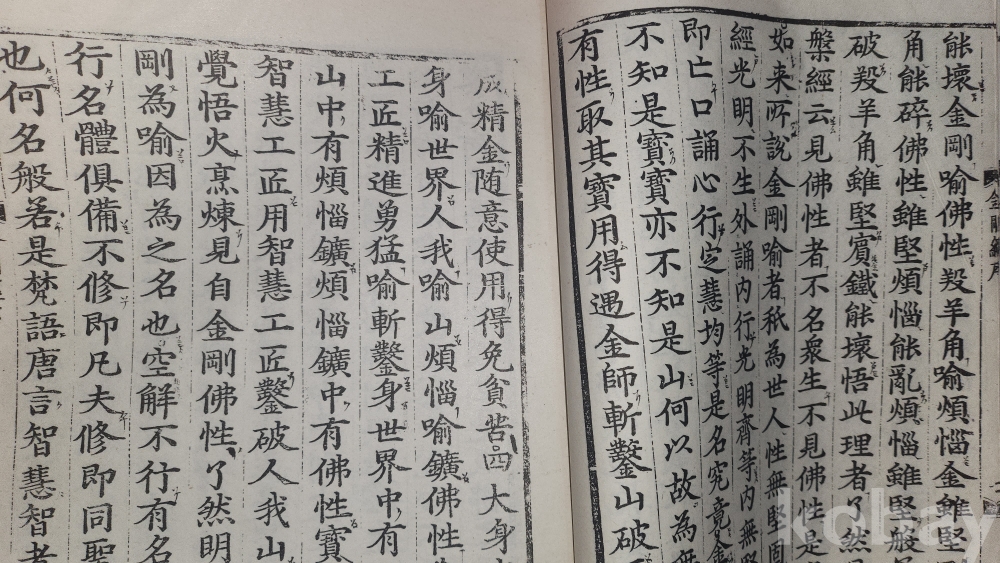 能壞金剛喻佛性羖羊角喻煩惱金雖堅
角能碎佛性雖堅煩惱能亂煩惱雖堅般
破羖羊角雖堅賓鐵能壞悟此理者了然
槃經云見佛性者不名衆生不見佛性是
如来所説金剛喻者秖為世人性無堅固
經光明不生外誦内行光明齊等内無堅
即亡口誦心行定慧均等是名究竟金
不知是寶寶亦不知是山何以故為無
有性取其寶用得遇金師斬鑿山破
精金随意使用得免貧苦四大身
身喻世界人我喻山煩惱喻鑛佛性
工匠精進勇猛喻斬鑿身世界中有
山中有煩惱鑛煩惱鑛中有佛性寶
智慧工匠用智慧工匠鑿破人我山
覺悟火烹煉見自金剛佛性了然明
剛為喻因為之名也空解不行有名
行名體俱備不修即凡夫修即同聖
也何名般若是梵語唐言智慧智者
kobay